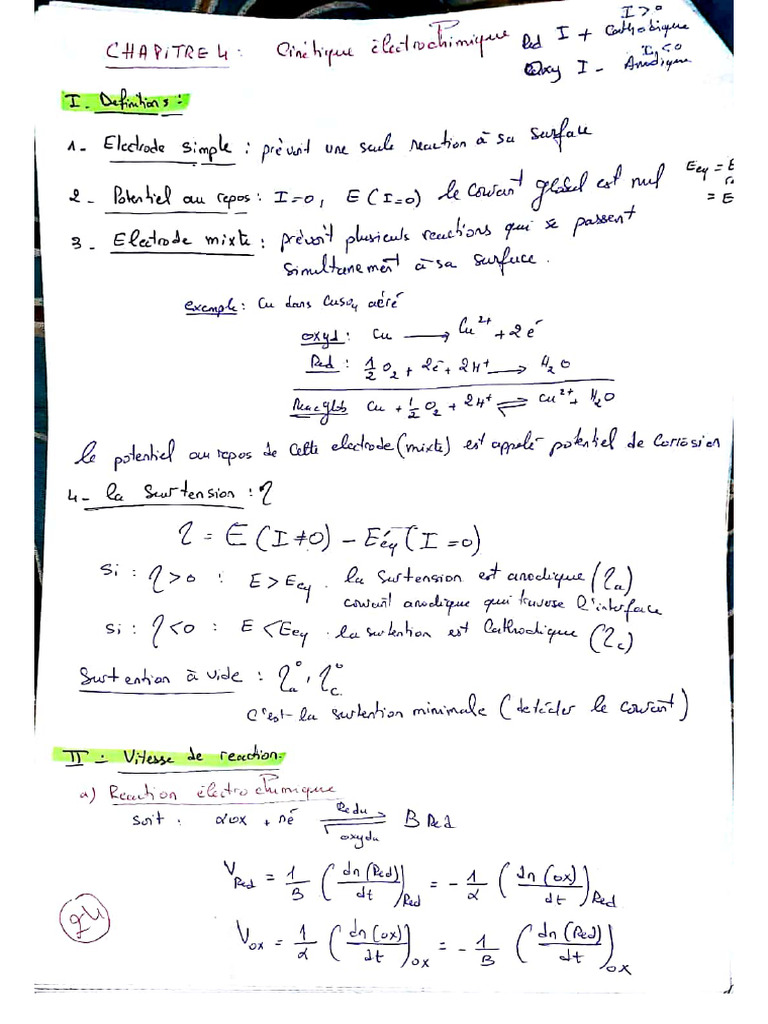 CHAPITRE 4 : Cinétique électrochimique
Red I + Cathodique I>0
Oxy I - Anodique I<0
I. Definitions :
1- Electrode simple : prévoit une seule reaction à sa surface
2- Potentiel au repos : I=0, E(I=0) le courant global est nul
Eeq = E
= E
3- Electrode mixte : prévoit plusieurs reactions qui se passent
simultanement à sa surface.
exemple : Cu dans CuSO4 aéré
oxyd : Cu → Cu²⁺ + 2é
Red : 1/2 O₂ + 2é + 2H⁺ → H₂O
Reac glob Cu + 1/2 O₂ + 2H⁺ ⇌ Cu²⁺ + H₂O
le potentiel au repos de cette electrode (mixte) est appelé potentiel de corrosion
4- la surtension : η
η = E(I≠0) - Eéq(I=0)
si : η>0 : E>Eeq . la surtension est anodique (ηa)
courant anodique qui traverse l'interface
si : η<0 : E<Eeq . la surtention est cathodique (ηc)
Surtention à vide : ηa°, ηc°
c'est la surtention minimale (detécter le courant)
II - Vitesse de reaction.
a) Reaction électrochimique
soit : αox + né ⇌ B Red
Redu
oxydu
V Red = 1/B (dn(Red)/dt)Red = - 1/α (dn(ox)/dt)Red
Vox = 1/α (dn(ox)/dt)ox = - 1/B (dn(Red)/dt)ox
24